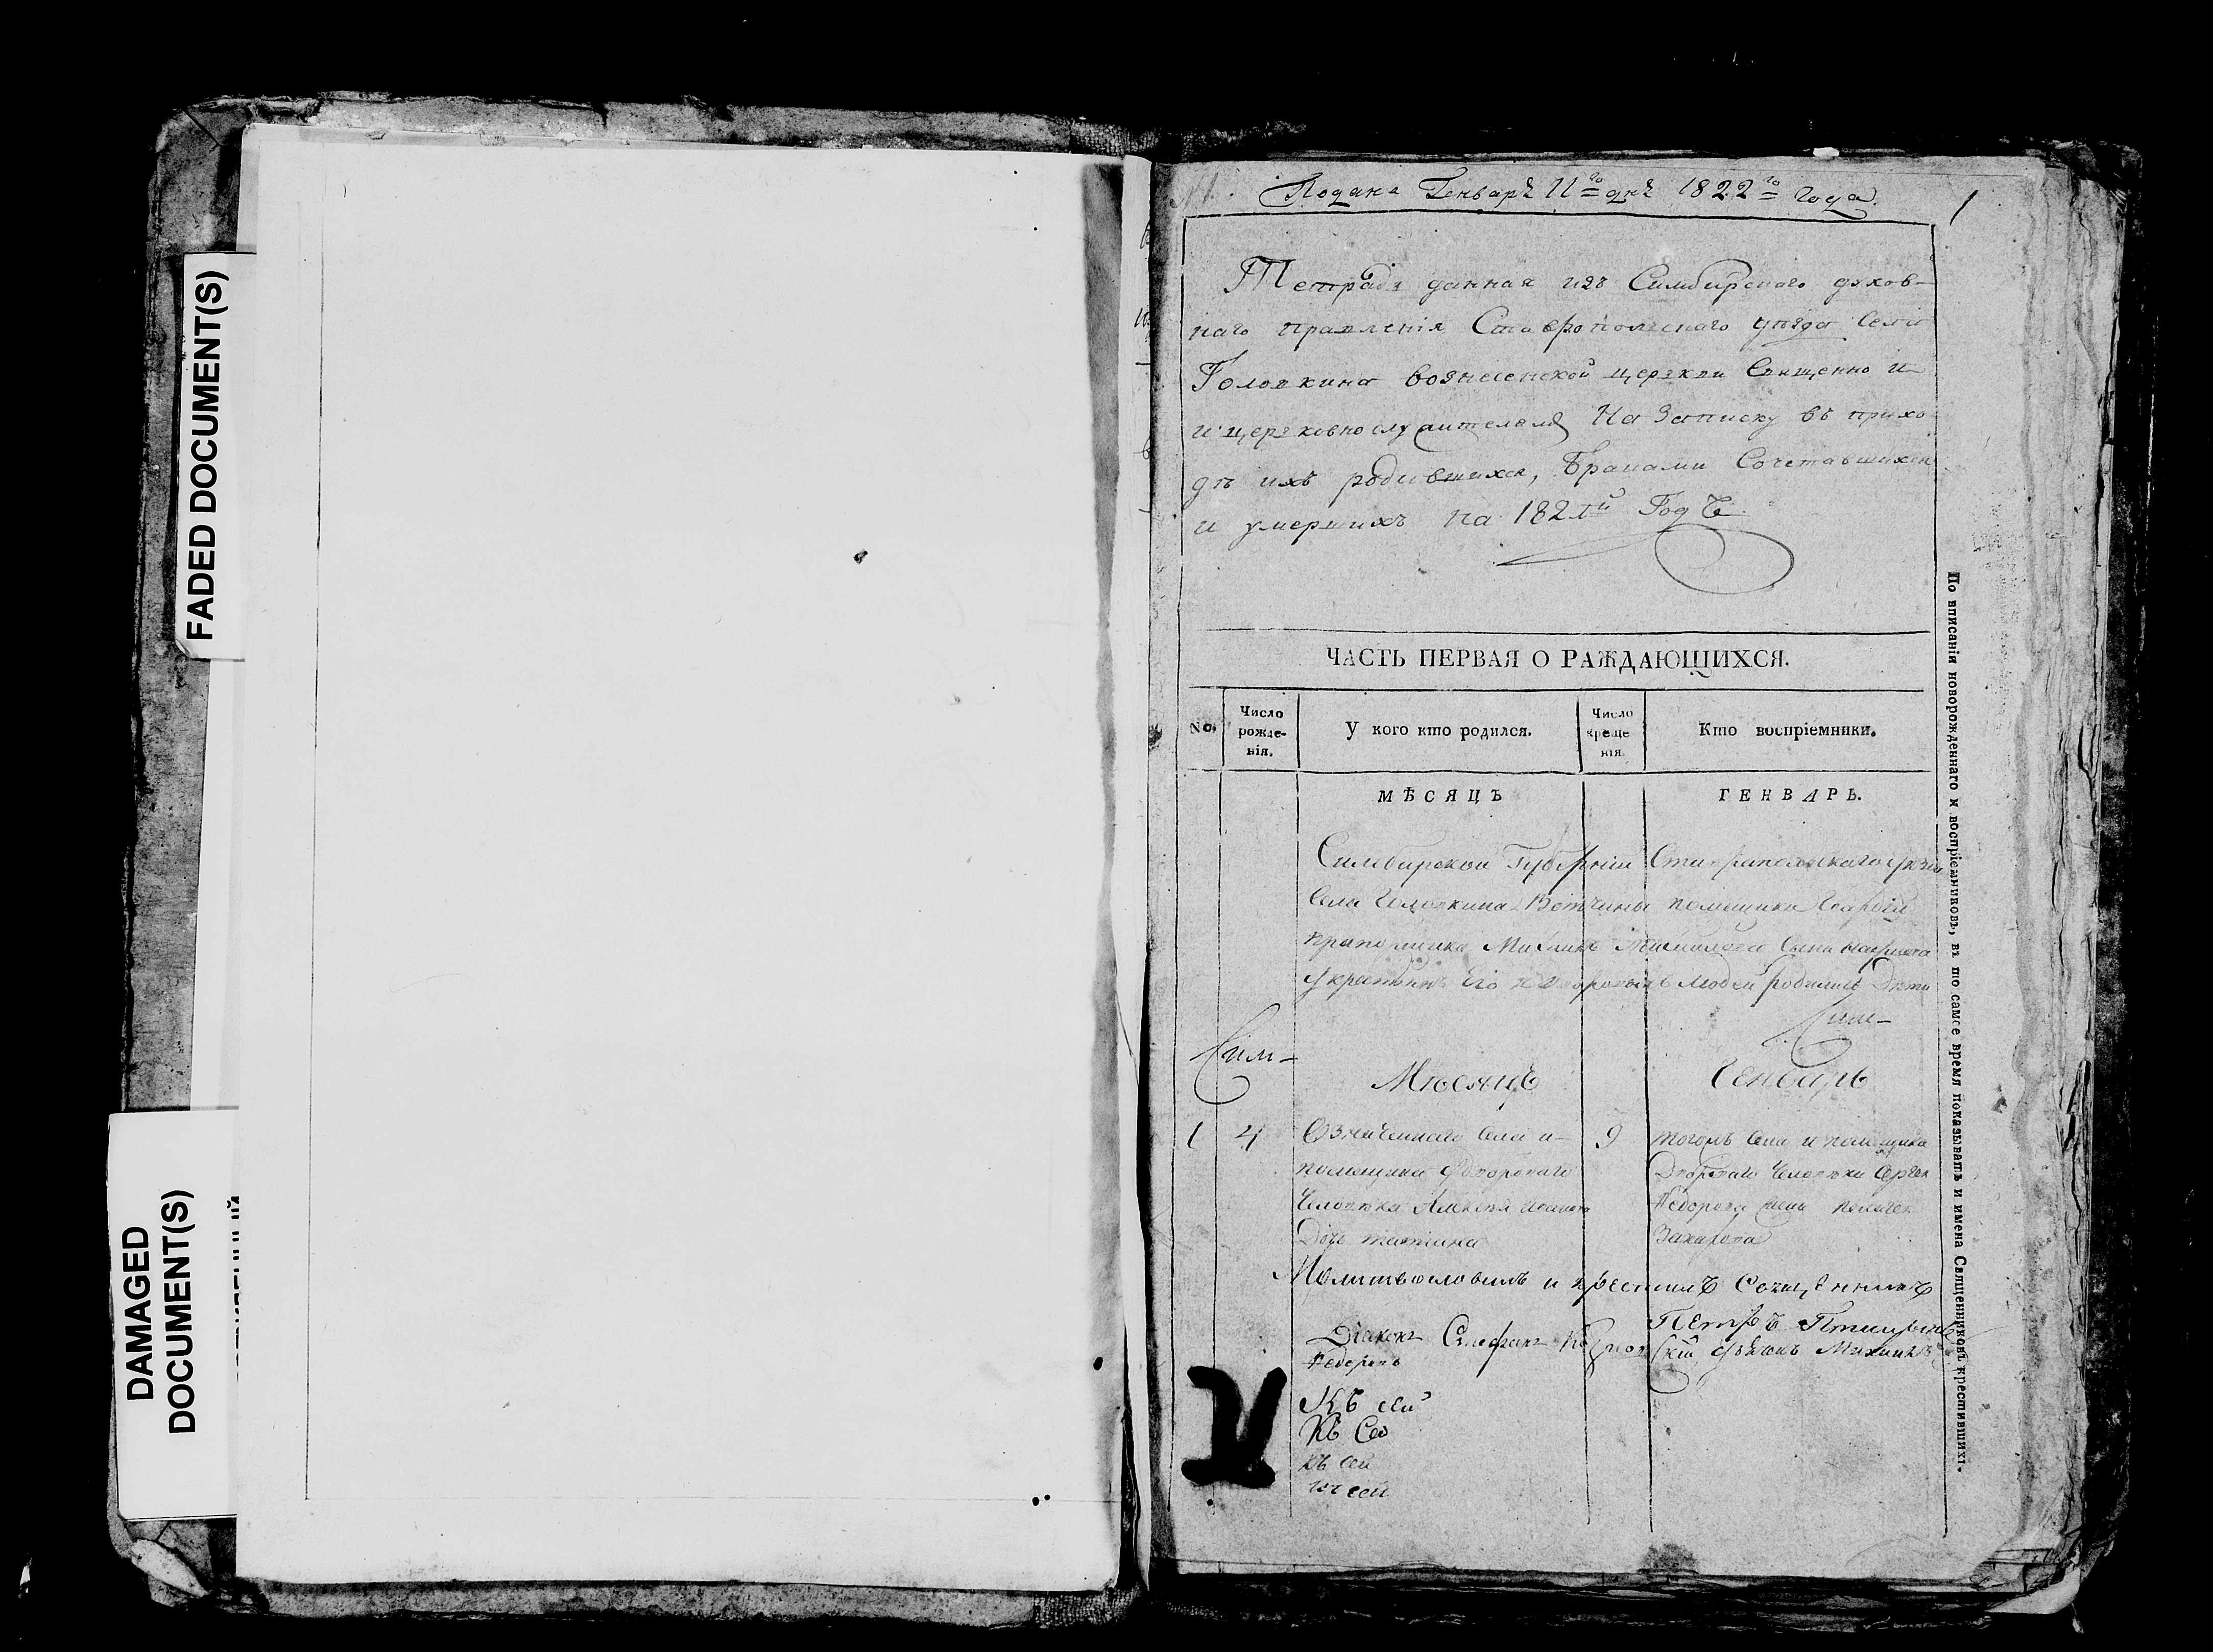 FADED DOCUMENT(S)
DAMAGED
DOCUMENT(S)
Подана Генваря 11го дня 1822го года.
1
Тетрадь данная изъ Симбирскаго духов-
наго правленія Ставропольскаго уѣзда села
Головкина вознесенской церкви священно и
и церковнослужителямъ На Записку въ прихо
дѣ ихъ родившихся, Браками Сочетавшихся
и умершихъ на 1821й Годъ
ЧАСТЬ ПЕРВАЯ О РАЖДАЮЩИХСЯ.
No.
Число
рожде-
нія.
У кого кто родился.
Число
креще
нія.
Кто воспріемники.
МѢСЯЦЪ ГЕНВАРЬ.
Симбирской Губерніи Ставропольскаго уѣзда
Села Головкина Вотчины помещика Гвардіи
прапорщика
крестьянъ Его и дворовыхъ людей родились Дѣти
Сим-
Сим-
Мѣсяцъ Генварь
1 4 Означеннаго Села и-
помещика дворороваго
Человека Алексея Иванова
Дочь татиана
9 тогожъ Села и помещика
Дворового Человека Сергея
Федорова жена Пелагея
Захарова
Молитвословилъ и крестилъ Священникъ
Петръ
Діаконъ Стефанъ
Федоровъ
Къ сей
Къ Сей
къ сей
къ сей
По вписаніи новорожденнаго и воспріемниковъ, въ то самое время показывать и имена Священниковъ крестившихъ.